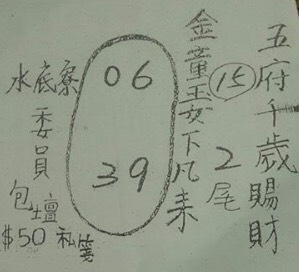 五府千歲賜財
15
2尾
金童玉女下凡来
06
39
水底寮
委員
包壇
$50 私箋